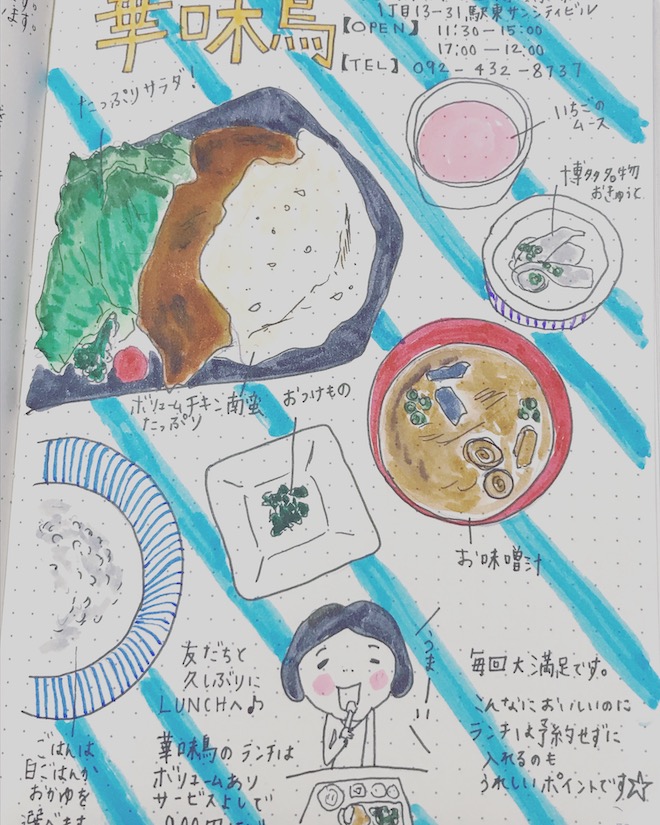 華味鳥
1丁目13-31,駅東サンシティビル
【OPEN】 11:30-15:00
17:00-12:00
【TEL】 092-432-8737
たっぷりサラダ!
いちごの
ムース
博多名物
おきゅうと
ボリュームチキン南蛮
たっぷり
おつけもの
お味噌汁
友だちと
久しぶりに
LUNCHへ♪
うまーいい
毎回大満足です。
こんなにおいしいのに
ランチは予約せずに
入れるのも
うれしいポイントです☆
ごはんは
白ごはんか
おかゆを
選べます
華味鳥のランチは
ボリュームあり
サービスよしで